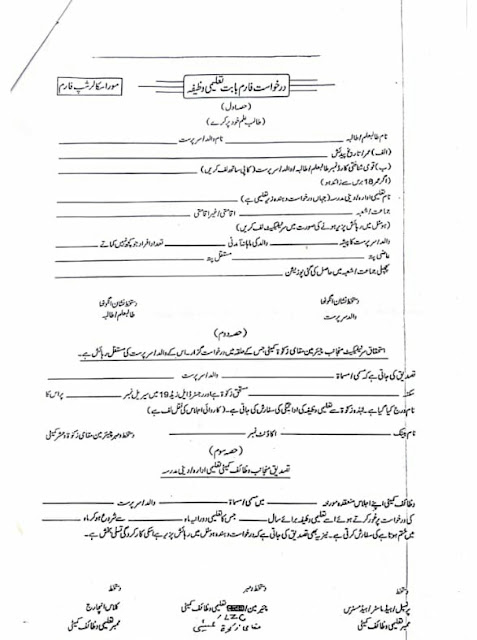 درخواست فارم بابت تعلیمی وظیفہ
مورا سکالرشپ فارم
(حصہ اول)
(طالب علم خود پر کرے)
نام طالبعلم/طالبہ ولد/سرپرست
(الف) عمر/تاریخ پیدائش
(ب) قومی شناختی کارڈ نمبر طالبعلم/طالبہ/والد/سرپرست (کاپی ساتھ لف کریں)
(اگر عمر 18 برس سے زائد ہو)
نام تعلیمی ادارہ/دینی مدرسہ (جہاں درخواست دہندہ زیر تعلیم ہے)
جماعت/شعبہ اقامتی/غیر اقامتی
(ہوسٹل میں رہائش پزیر ہونے کی صورت میں سرٹیفکیٹ لف کریں)
والد/سرپرست کا پیشہ والد کی ماہانہ آمدنی تعداد افراد جو کچھ نہیں کماتے
عارضی پتہ مستقل پتہ
پچھلی جماعت/شعبہ میں حاصل کی گئی پوزیشن
دستخط نشان انگوٹھا دستخط نشان انگوٹھا
والد/سرپرست طالبعلم/طالبہ
(حصہ دوم)
استحقاق سرٹیفکیٹ منجانب چیئرمین مقامی زکوٰۃ کمیٹی جس کے حلقہ میں درخواست گزار۔اس کے والد/سرپرست کی مستقل رہائش ہے۔
تصدیق کی جاتی ہے کہ مسمی/مسماۃ ولد/سرپرست
سکنہ مستحق زکوٰۃ ہے اور رجسٹر ایل زیڈ 19 میں سیریل نمبر پر اس کا
نام درج کیا گیا ہے۔لہذہ زکوٰۃ سے تعلیمی وظیفہ کی ادائیگی کی سفارش کی جاتی ہے۔(کاروائی اجلاس کی نقل لف ہے)
نام بینک اکاؤنٹ نمبر دستخط و مہر چیئرمین مقامی زکوٰۃ و عشر کمیٹی
(حصہ سوم)
تصدیق منجانب وظائف کمیٹی تعلیمی ادارہ/دینی مدرسہ
وظائف کمیٹی اپنے اجلاس منعقدہ مورخہ میں مسمی/مسماۃ ولد/سرپرست
کی درخواست پر غور کرتے ہوئے اسے تعلیمی وظیفہ برائے سال جس کا تعلیمی دورانیہ ماہ سے شروع ہو کر ماہ
میں ختم ہوتا ہے کی سفارش کرتی ہے۔نیز یہ بھی تصدیق کی جاتی ہے کہ درخواست دہندہ ہوسٹل میں رہائش پزیر ہے/اسکی کارکردگی تسلی بخش ہے۔
دستخط دستخط و مہر دستخط
پرنسپل/ہیڈ ماسٹر/ہیڈمسٹرس چیئرمین تعلیمی وظائف کمیٹی کلاس انچارج
ممبر تعلیمی وظائف کمیٹی LZC مقامی زکوٰۃ کمیٹی ممبر تعلیمی وظائف کمیٹی